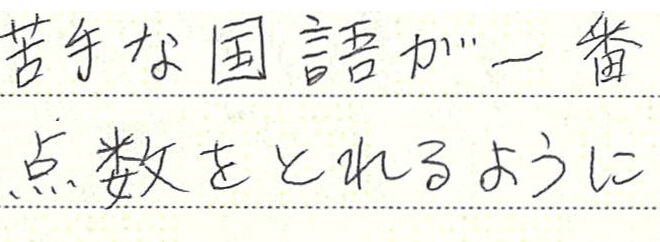 苦手な国語が一番
点数をとれるように